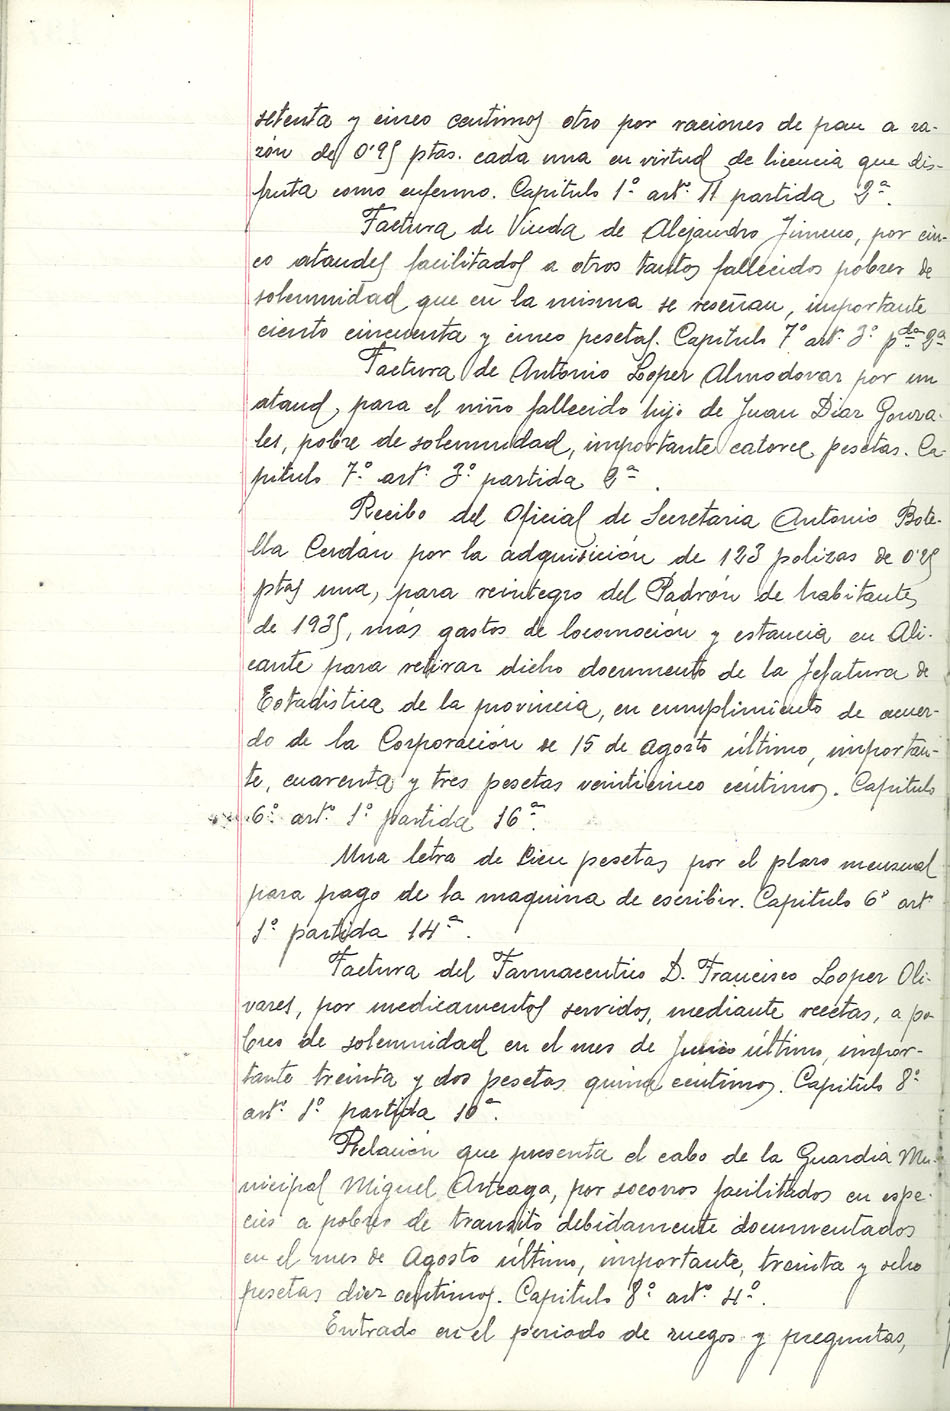 setenta y cinco centimos otro por raciones de pan a ra-
zón de 0'25 ptas. cada una en virtud de licencia que dis-
fruta como enfermo. Capitulo 1º artº 11 partida 2ª.
Factura de Viuda de Alejandro Jimeno, por cin-
co ataudes facilitados a otros tantos fallecidos pobres de
solemnidad que en la misma se reseñan, importante
ciento cincuenta y cinco pesetas. Capitulo 7º artº 3º pda 9ª
Factura de Antonio Lopez Almodovar por un
ataud, para el niño fallecido hijo de Juan Diaz Gonza-
les, pobre de solemnidad, importante catorce pesetas. Ca-
pitulo 7º artº 3º partida 9ª.
Recibo del Oficial de Secretaria Antonio Bote-
lla Cerdán por la adquisición de 123 polizas de 0'25
ptas una, para reintegro del Padrón de habitantes
de 1935, más gastos de locomoción y estancia en Ali-
cante para retirar dicho documento de la Jefatura de
Estadistica de la provincia, en cumplimiento de acuer-
do de la Corporación de 15 de agosto último, importan-
te, cuarenta y tres pesetas veinticinco céntimos. Capitulo
6º artº 1º partida 16ª.
Una letra de cien pesetas por el plazo mensual
para pago de la maquina de escribir. Capitulo 6º artº
1º partida 14ª.
Factura del Farmaceutico D. Francisco Lopez Oli-
vares, por medicamentos servidos, mediante recetas, a po-
bres de solemnidad en el mes de Junio último, impor-
tante treinta y dos pesetas quince céntimos. Capitulo 8º
artº 1º partida 10ª.
Relación que presenta el cabo de la Guardia Mu-
nicipal Miguel Arteaga, por socorros facilitados en espe-
cies a pobres de transito debidamente documentados
en el mes de Agosto último, importante, treinta y ocho
pesetas diez centimos. Capitulo 8º artº 4º.
Entrado en el periodo de ruegos y preguntas,